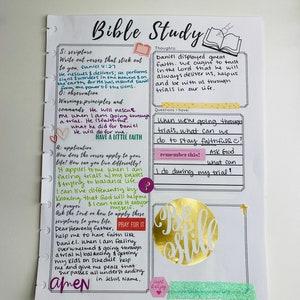 Bible Study
S: scripture
Write out verses that stick out
to you. Daniel 6:27
He rescues & delivers; he performs
signs & wonders in the heavens &
on the earth, for he has rescued Daniel
from the power of the lions.
O: observation
Warnings, principles, and
commands. He will rescue
me when I am going through
a trial. He is faithful
what he did for Daniel
He will do for me.
HAVE A LITTLE FAITH
A: application
How does the verses apply to your
life? How can you live differently?
It applies to me when I am
facing trials w/ my babies
& trying to balance life.
I can live differently by
knowing that God will save
me.
P: prayer
Ask the Lord on how to apply these
scriptures to your life.
PRAY FOR IT
Dear heavenly father,
help me to have faith like
Daniel. When I am feeling
overwhelmed & going through
a trial w/ balancing & getting
my kids on schedule help
me and give me peace that
surpasses all understanding
in Jesus Name.
amen
Thoughts:
Daniel displayed great
faith. We ought to trust
in the Lord that he will
always deliver us, helps us
and be with us through
trials in our life.
Questions / Notes
When we're going through
trials, what can we
do to stay faithful?
remember this!
Ask God
what can
I do during my trial!
Be
Still